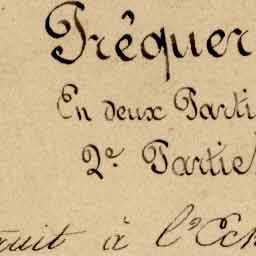 Tréquer
En deux Parti
2e Partie
truit à l'Ech